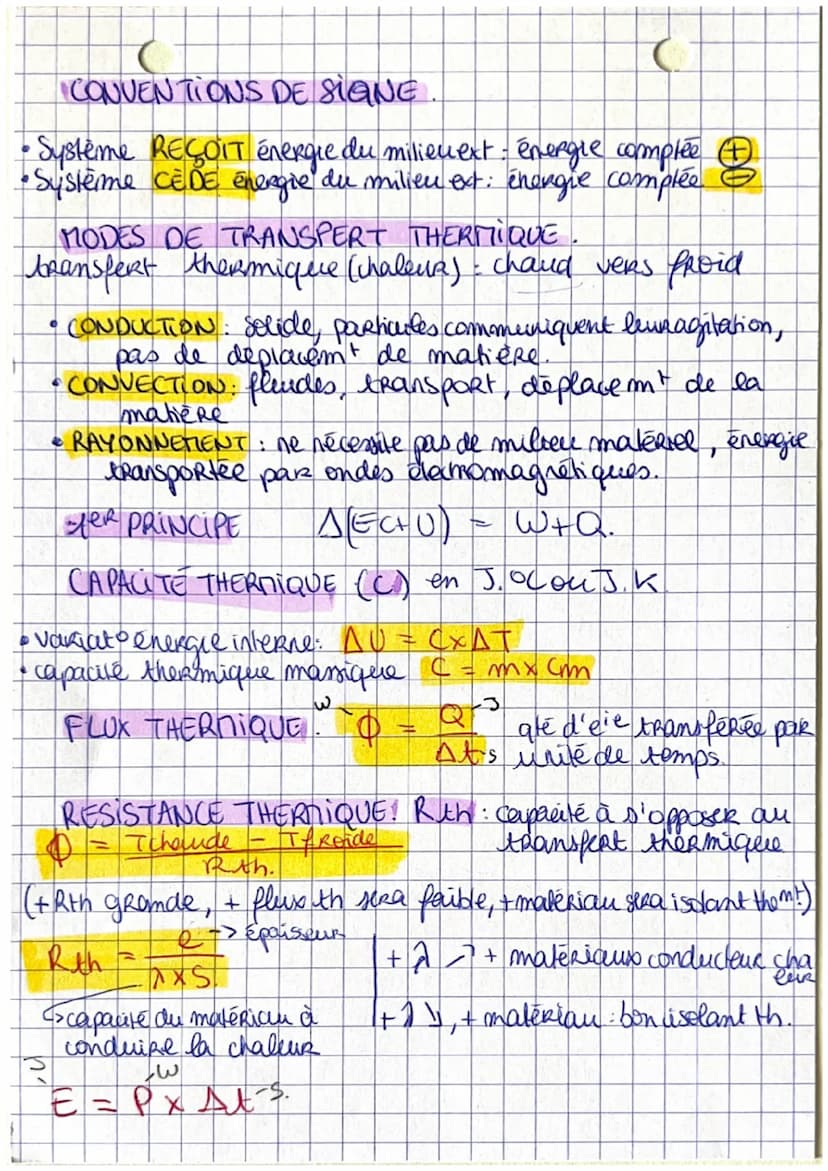 CONVENTIONS DE SIGNE.
• Système REÇOIT énergie du milieu ext : énergie comptée +
• Système CÈDE énergie du milieu ext : énergie comptée -
MODES DE TRANSPERT THERMIQUE.
transfert thermique (chaleur) : chaud vers froid
• CONDUCTION : solide, particules communiquent leur agitation,
pas de déplacemt de matière.
• CONVECTION : fluides, transport, déplacemt de la
matière
• RAYONNEMENT : ne nécessite pas de milieu matériel, énergie
transportée par ondes électromagnétiques.
1er PRINCIPE Δ(Ec+U) = W+Q.
CAPACITÉ THERMIQUE (C) en J.°C ou J.K
• variat° énergie interne : ΔU = C×ΔT
• capacité thermique massique C = m×Cm
FLUX THERMIQUE. W Φ = Q J / Δt s qté d'eie transférée par
unité de temps.
RESISTANCE THERMIQUE! Rth : capacité à s'opposer au
transfert thermique
Φ = Tchaude - Tfroide / Rth.
(+Rth grande, + flux th sera faible, + matériau sera isolant themt)
Rth = e / λ×S. -> épaisseur
+ λ ↗ + matériaux conducteur chaleur
↳ capacité du matériau à
conduire la chaleur
+ λ ↘, + matériau : bon isolant th.
J W s.
E = P × Δt